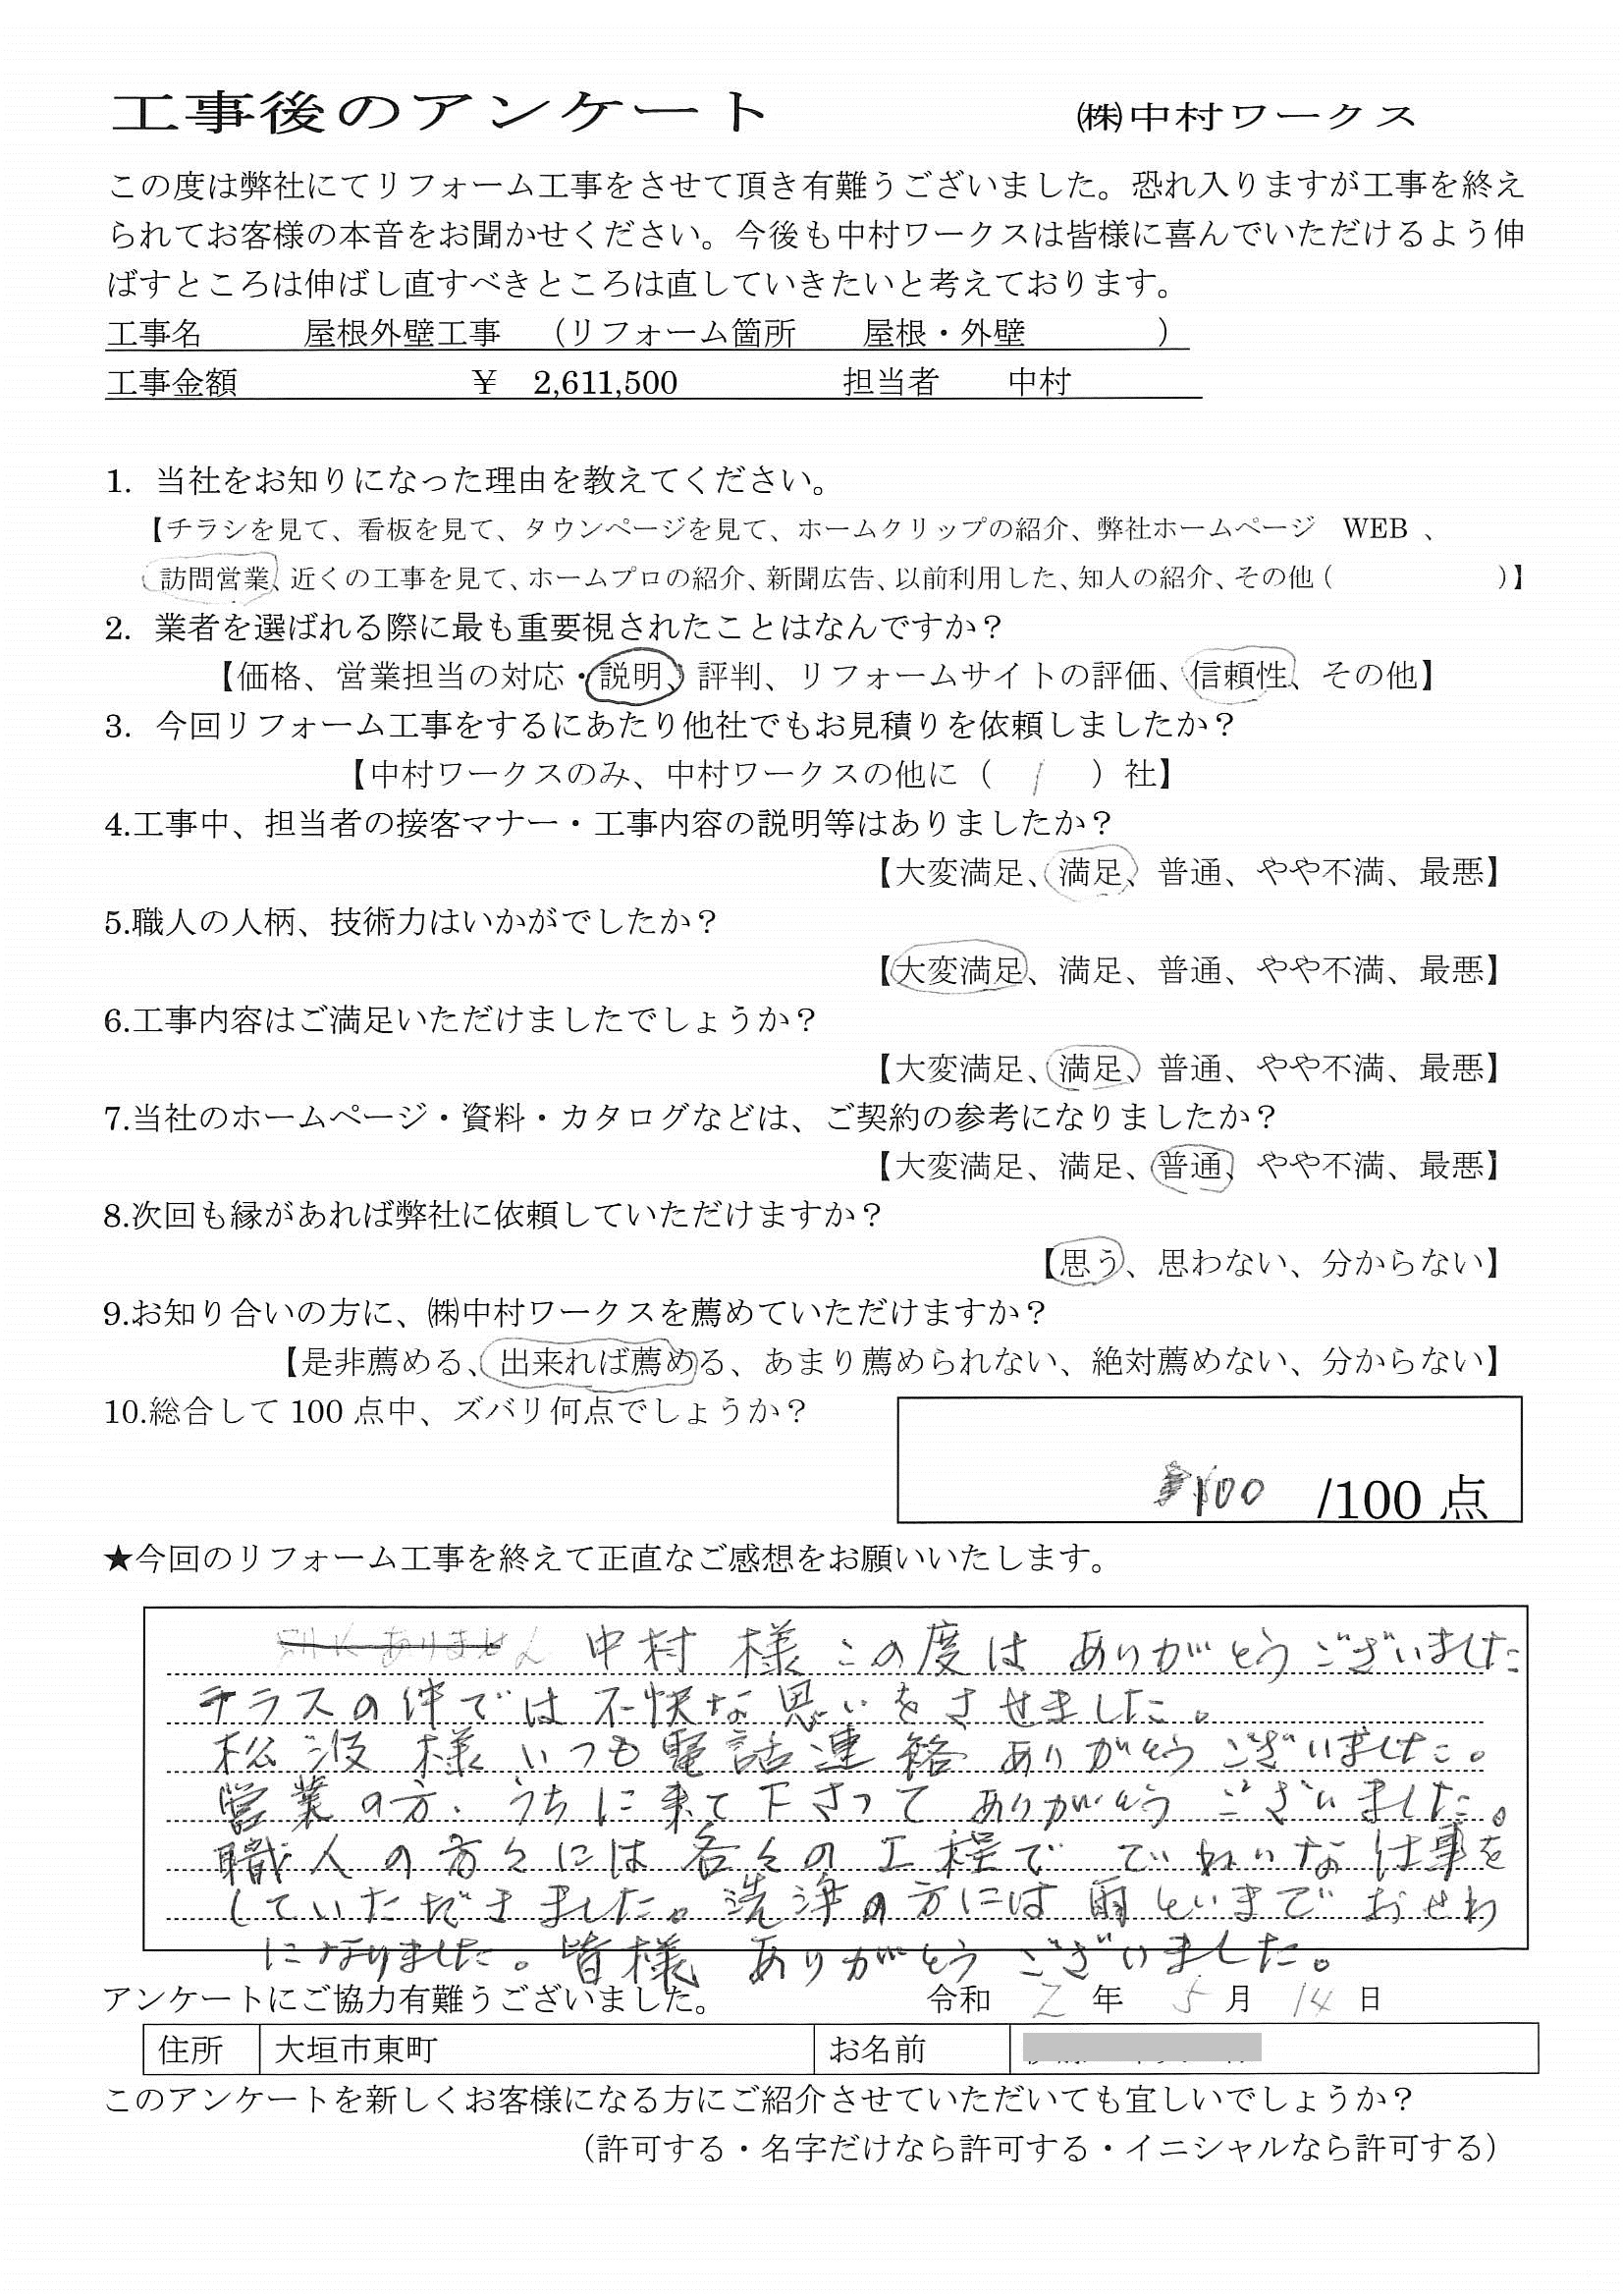 工事後のアンケート　㈱中村ワークス
この度は弊社にてリフォーム工事をさせて頂き有難うございました。恐れ入りますが工事を終え
られてお客様の本音をお聞かせください。今後も中村ワークスは皆様に喜んでいただけるよう伸
ばすところは伸ばし直すべきところは直していきたいと考えております。
工事名　屋根外壁工事　（リフォーム箇所　屋根・外壁　）
工事金額　￥ 2,611,500　担当者　中村
1. 当社をお知りになった理由を教えてください。
【チラシを見て、看板を見て、タウンページを見て、ホームクリップの紹介、弊社ホームページ　WEB 、
訪問営業、近くの工事を見て、ホームプロの紹介、新聞広告、以前利用した、知人の紹介、その他（　）】
2. 業者を選ばれる際に最も重要視されたことはなんですか？
【価格、営業担当の対応・説明、評判、リフォームサイトの評価、信頼性、その他】
3. 今回リフォーム工事をするにあたり他社でもお見積りを依頼しましたか？
【中村ワークスのみ、中村ワークスの他に（ 1 ）社】
4.工事中、担当者の接客マナー・工事内容の説明等はありましたか？
【大変満足、満足、普通、やや不満、最悪】
5.職人の人柄、技術力はいかがでしたか？
【大変満足、満足、普通、やや不満、最悪】
6.工事内容はご満足いただけましたでしょうか？
【大変満足、満足、普通、やや不満、最悪】
7.当社のホームページ・資料・カタログなどは、ご契約の参考になりましたか？
【大変満足、満足、普通、やや不満、最悪】
8.次回も縁があれば弊社に依頼していただけますか？
【思う、思わない、分からない】
9.お知り合いの方に、㈱中村ワークスを薦めていただけますか？
【是非薦める、出来れば薦める、あまり薦められない、絶対薦めない、分からない】
10.総合して 100 点中、ズバリ何点でしょうか？
100 /100 点
★今回のリフォーム工事を終えて正直なご感想をお願いいたします。
ありません 中村 様 この度は ありがとうございました
テラスの件では 不快な思いをさせました。
松波 様 いつも電話連絡 ありがとうございました。
営業の方、うちに来て下さって ありがとう ございました。
職人の方々には 各々の工程で ていねいな仕事を
していただきました。洗浄の方には雨といまで おせわ
になりました。皆様 ありがとう ございました。
アンケートにご協力有難うございました。　令和 2 年 5 月 14 日
住所　大垣市東町　お名前
このアンケートを新しくお客様になる方にご紹介させていただいても宜しいでしょうか？
（許可する・名字だけなら許可する・イニシャルなら許可する）